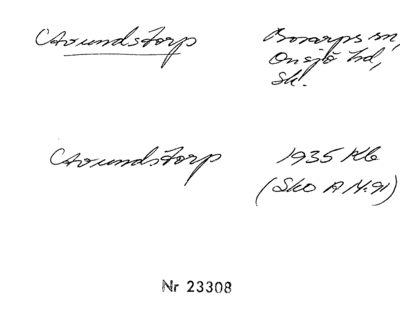 Avundstorp
Bosarps sn,
Onsjö hd,
Sk.
Avundstorp
1935 Kb
(SkO A 14:91)
Nr 23308